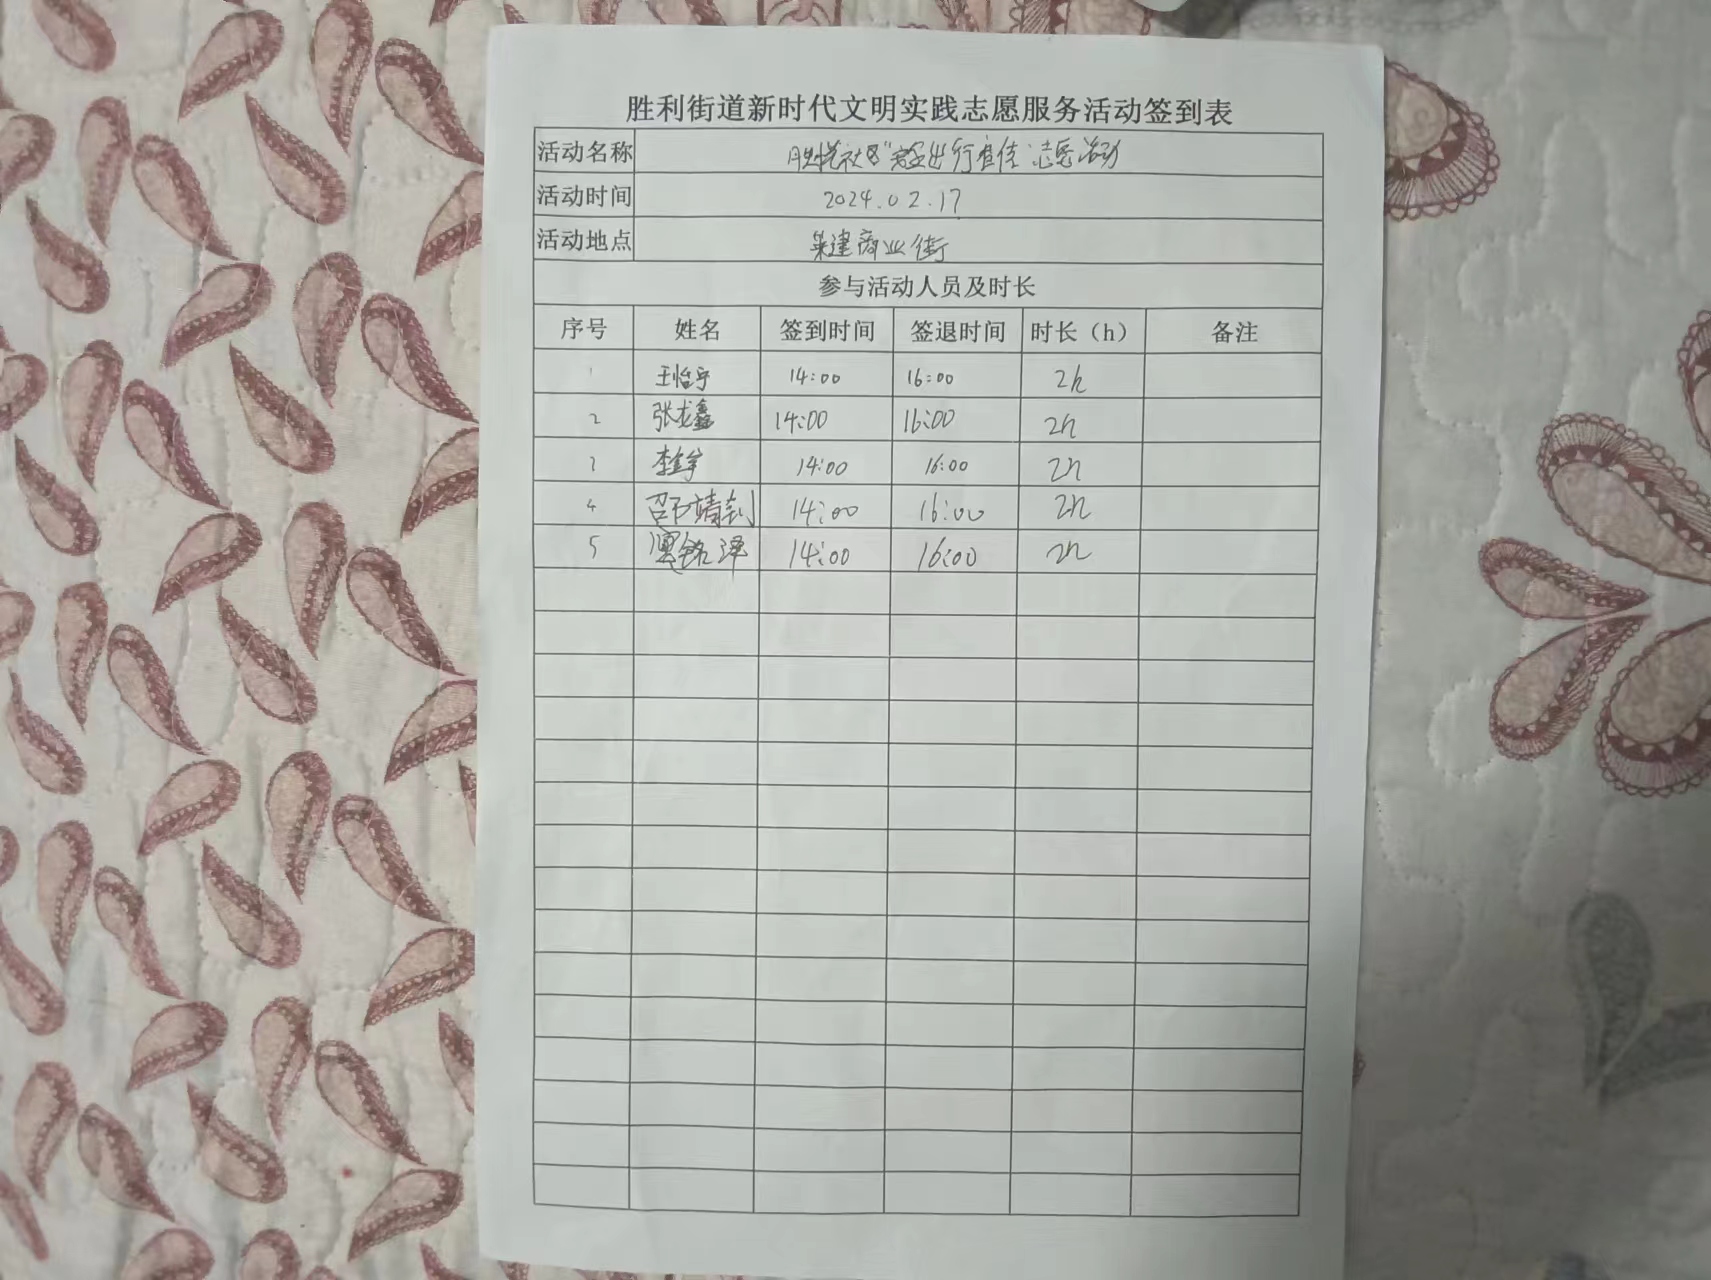 胜利街道新时代文明实践志愿服务活动签到表
活动名称 胜悦社区"安全出行宣传"志愿活动
活动时间 2024.02.17
活动地点 建商业街
参与活动人员及时长
序号 姓名 签到时间 签退时间 时长（h） 备注
1 王怡宁 14:00 16:00 2h
2 张龙鑫 14:00 16:00 2h
3 李 14:00 16:00 2h
4 邵靖 14:00 16:00 2h
5 铭泽 14:00 16:00 2h